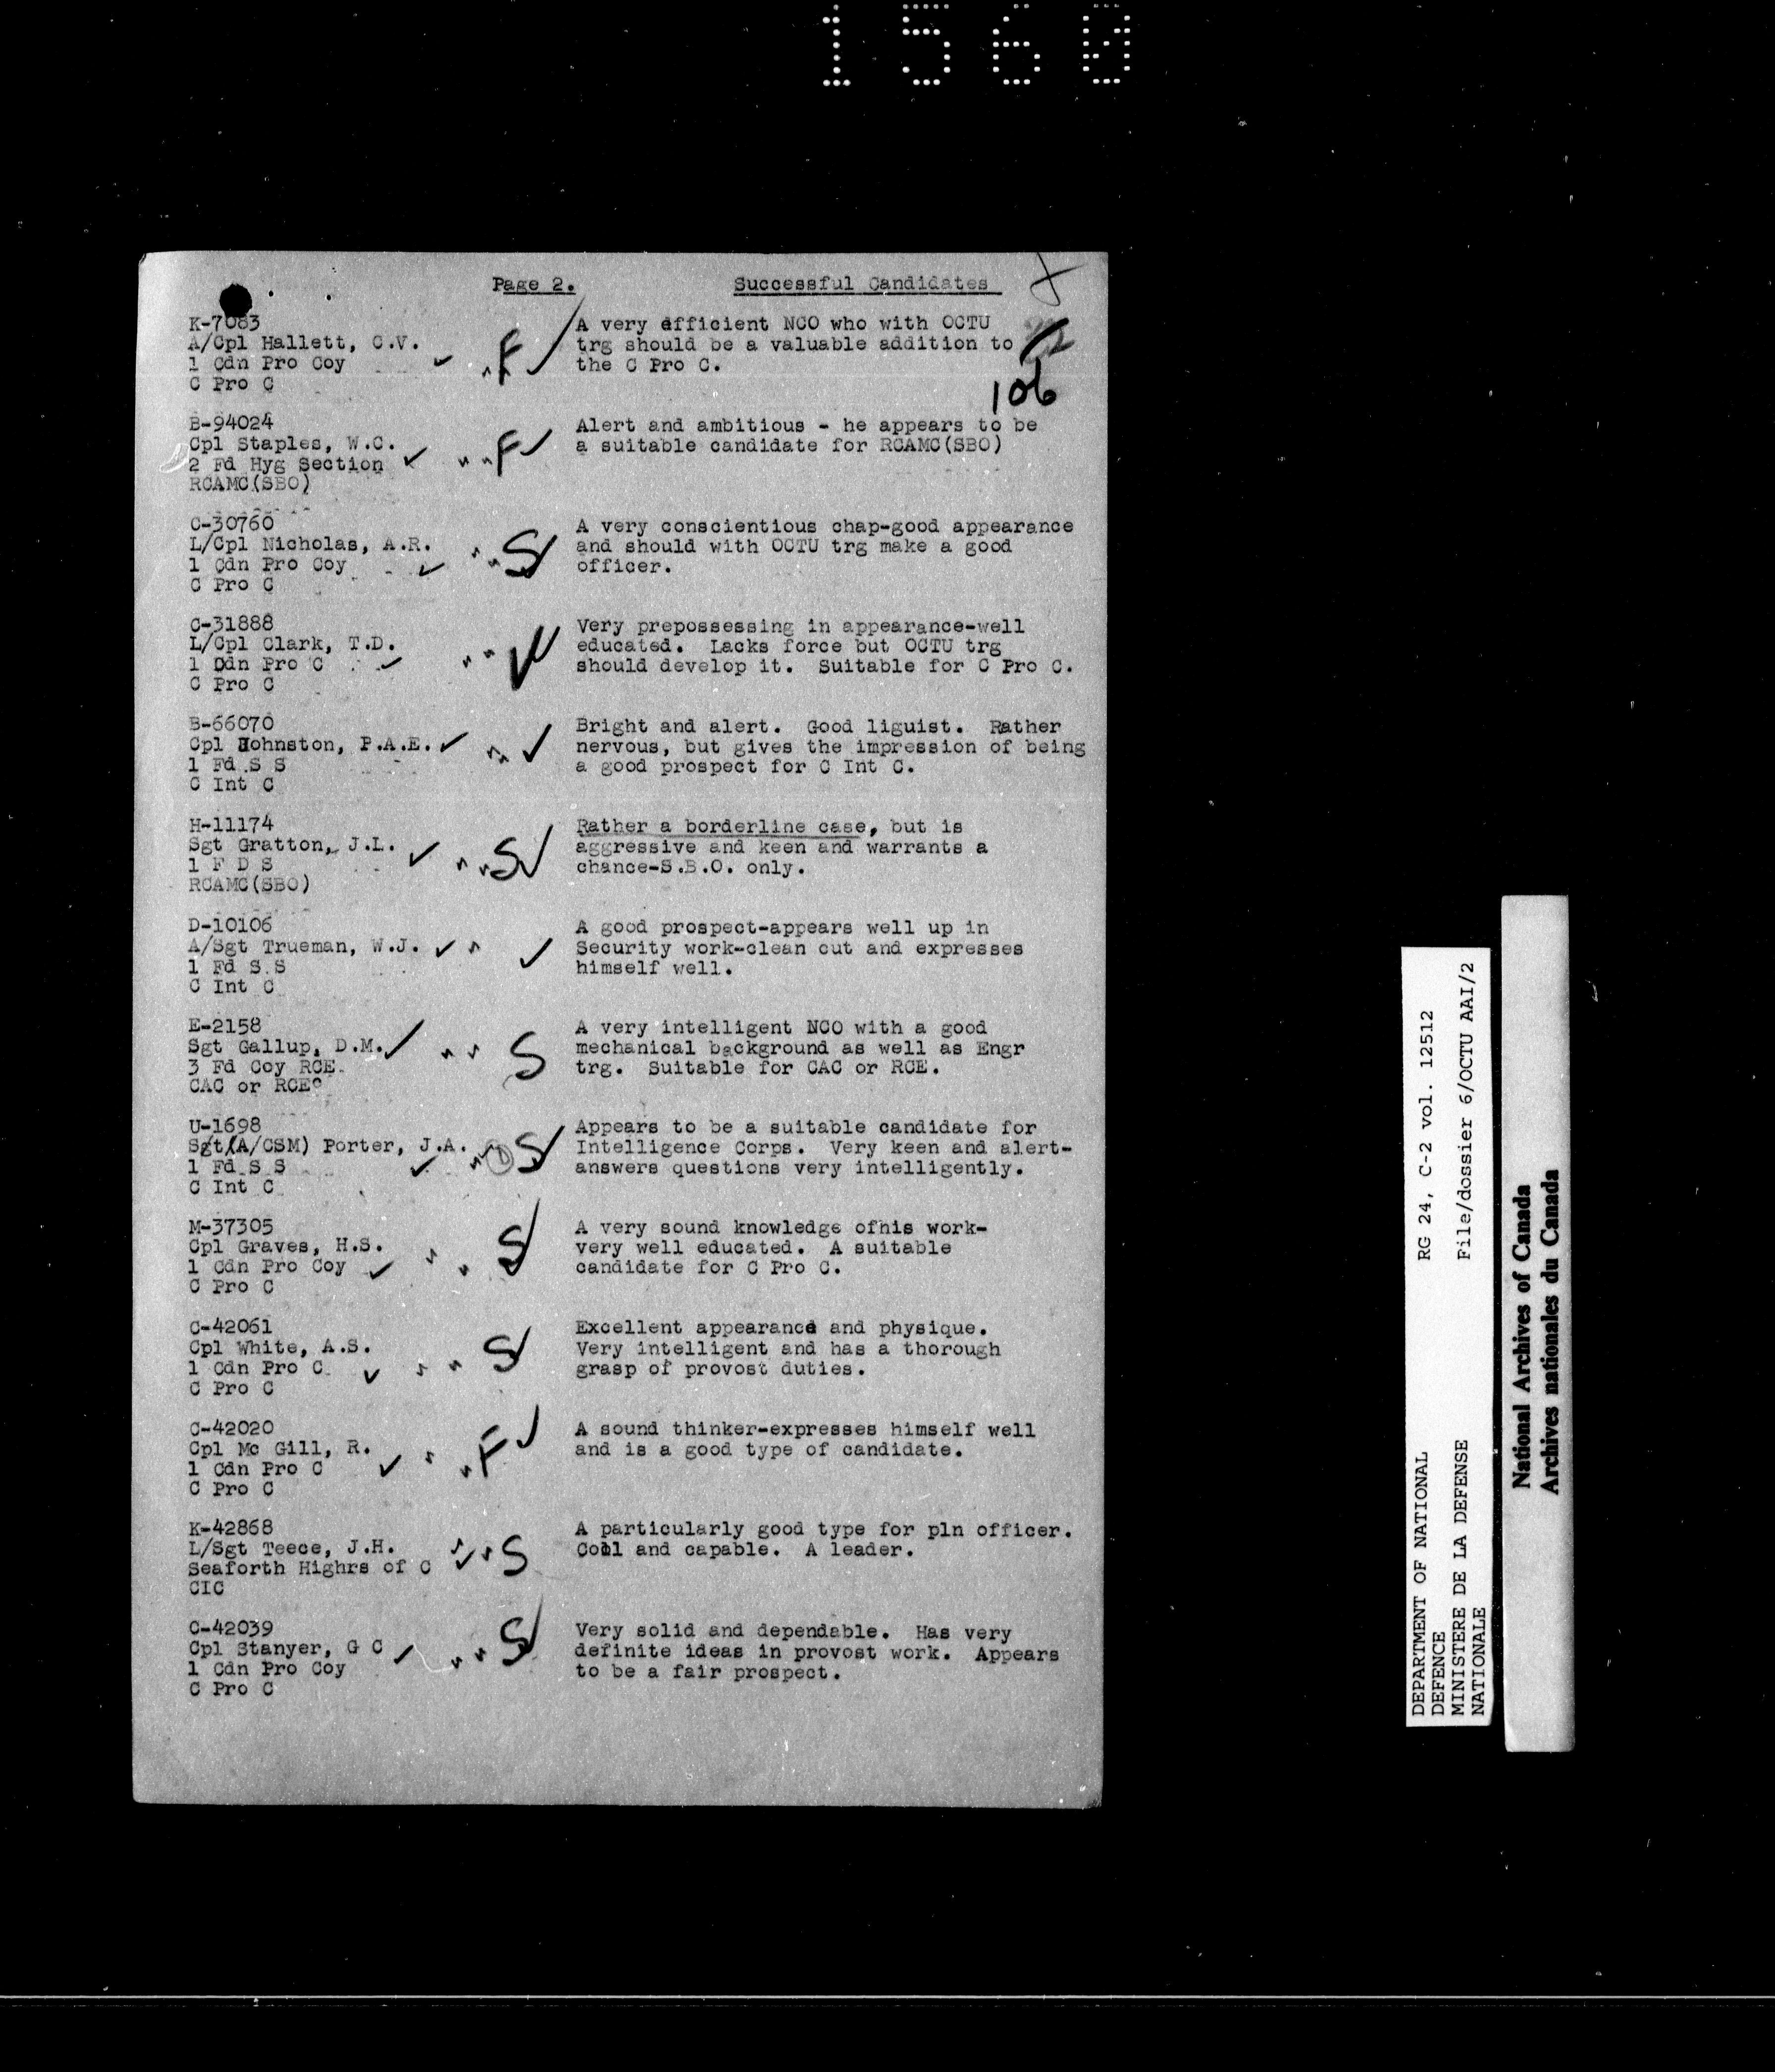 1560
Page 2.
Successful Candidates
K-7083
A/Cpl Hallett, C.V.
1 Cdn Pro Coy
C Pro C
F
A very efficient NCO who with OCTU
trg should be a valuable addition to
the C Pro C.
106
B-94024
Cpl Staples, W.C.
2 Fd Hyg Section
RCAMC(SBO)
F
Alert and ambitious - he appears to be
a suitable candidate for RCAMC(SBO)
C-30760
L/Cpl Nicholas, A.R.
1 Cdn Pro Coy
C Pro C
S
A very conscientious chap-good appearance
and should with OCTU trg make a good
officer.
C-31888
L/Cpl Clark, T.D.
1 Cdn Pro C
C Pro C
Very prepossessing in appearance-well
educated. Lacks force but OCTU trg
should develop it. Suitable for C Pro C.
B-66070
Cpl Johnston, P.A.E.
1 Fd S S
C Int C
Bright and alert. Good liguist. Rather
nervous, but gives the impression of being
a good prospect for C Int C.
H-11174
Sgt Gratton, J.L.
1 F D S
RCAMC(SBO)
S
Rather a borderline case, but is
aggressive and keen and warrants a
chance-S.B.O. only.
D-10106
A/Sgt Trueman, W.J.
1 Fd S S
C Int C
A good prospect-appears well up in
Security work-clean cut and expresses
himself well.
E-2158
Sgt Gallup, D.M.
3 Fd Coy RCE
CAC or RCE
S
A very intelligent NCO with a good
mechanical background as well as Engr
trg. Suitable for CAC or RCE.
U-1698
Sgt(A/CSM) Porter, J.A.
1 Fd S S
C Int C
S
Appears to be a suitable candidate for
Intelligence Corps. Very keen and alert-
answers questions very intelligently.
M-37305
Cpl Graves, H.S.
1 Cdn Pro Coy
C Pro C
S
A very sound knowledge ofhis work-
very well educated. A suitable
candidate for C Pro C.
C-42061
Cpl White, A.S.
1 Cdn Pro C
C Pro C
S
Excellent appearance and physique.
Very intelligent and has a thorough
grasp of provost duties.
C-42020
Cpl Mc Gill, R.
1 Cdn Pro C
C Pro C
F
A sound thinker-expresses himself well
and is a good type of candidate.
K-42868
L/Sgt Teece, J.H.
Seaforth Highrs of C
CIC
S
A particularly good type for pln officer.
Cool and capable. A leader.
C-42039
Cpl Stanyer, G C
1 Cdn Pro Coy
C Pro C
S
Very solid and dependable. Has very
definite ideas in provost work. Appears
to be a fair prospect.
DEPARTMENT OF NATIONAL
DEFENCE
MINISTERE DE LA DEFENSE
NATIONALE
RG 24, C-2 vol. 12512
File/dossier 6/OCTU AAI/2
National Archives of Canada
Archives nationales du Canada